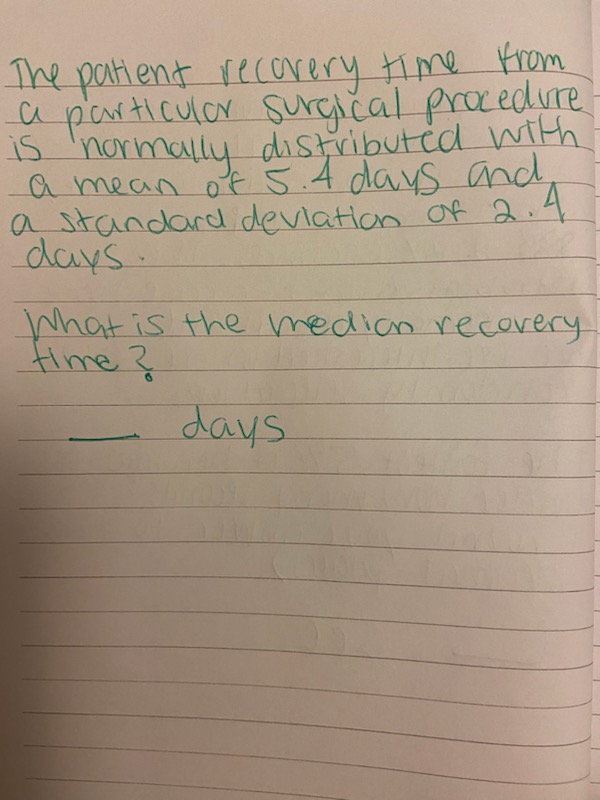 The patient recovery time from
a particular surgical procedure
is normally distributed with
a mean of 5.4 days and
a standard deviation of 2.4
days.
What is the median recovery
time?
___ days